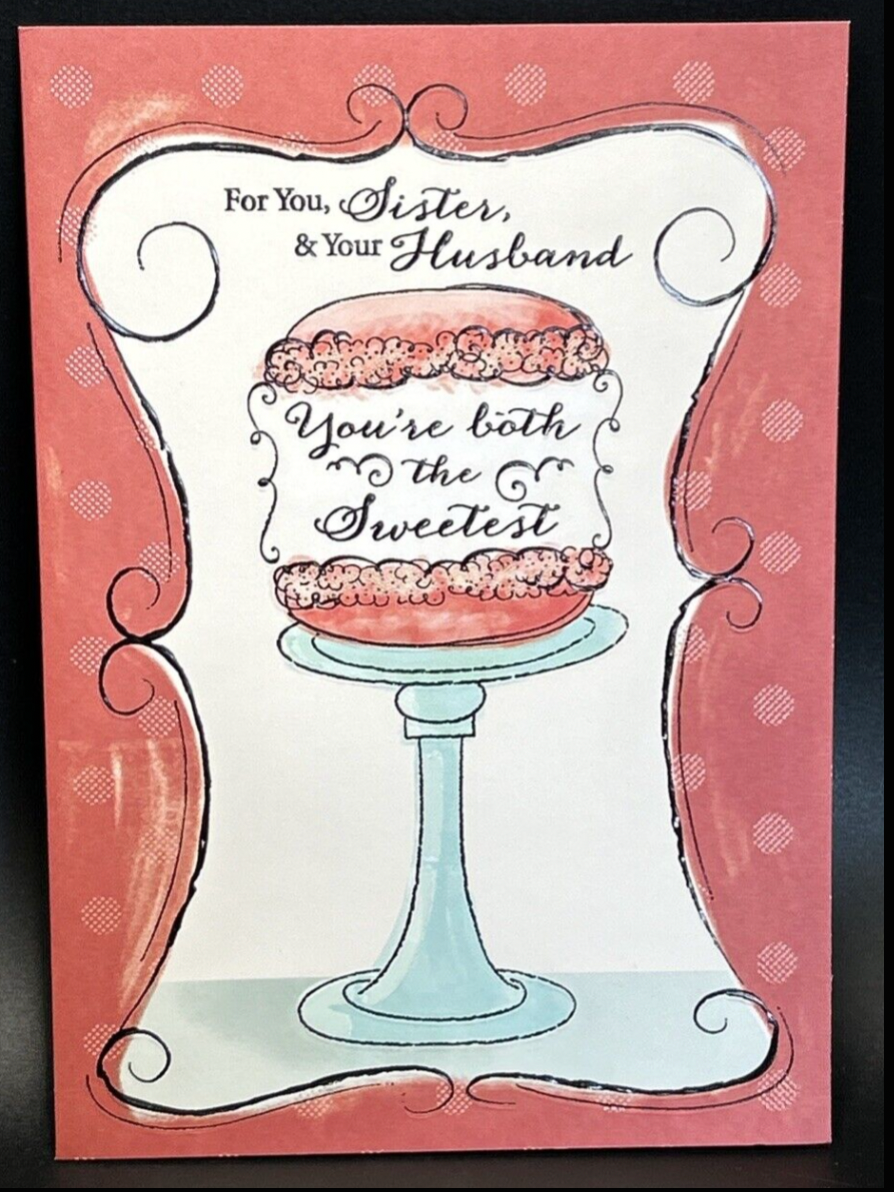 For You, Sister,
& Your Husband
You're both
the
Sweetest